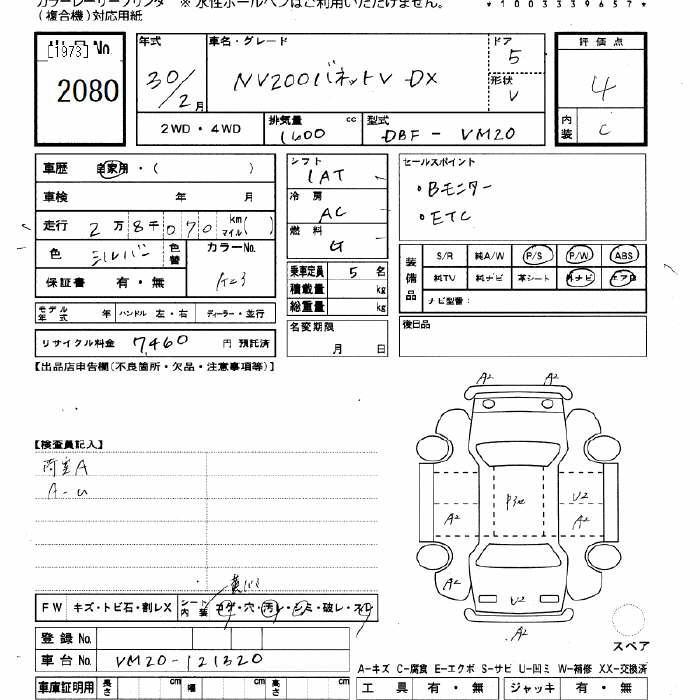 カラーレーザープリンタ ※ 水性ボールペンはご利用いただけません。
(複合機)対応用紙
*1003339657*
[1973] No
2080
年式 30/2月
車名・グレード NV200バネットV DX
ドア 5
形状 V
評価点 4
内装 C
2WD・4WD
排気量 1600 cc
型式 DBF-VM20
車歴 自家用・( )
車検 年 月
走行 2万8千070 km マイル( )
色 シルバー 色替 カラーNo.
保証書 有・無
シフト 1AT
冷房 AC
燃料 G
乗車定員 5名
積載量 kg
総重量 kg
名変期限 月 日
セールスポイント
・Bモニター
・ETC
装備品 S/R 純A/W P/S P/W ABS
純TV 純ナビ 革シート 外ナビ エアB
ナビ型番:
後日品
モデル年式 年 ハンドル 左・右 ディーラー・並行
リサイクル料金 7,460 円 預託済
【出品店申告欄(不良箇所・欠品・注意事項等)】
【検査員記入】
荷室A
A-U
A2 A2
A2 U2
A2
A2 A2
U2
A2
スペア
FW キズ・トビ石・割レX シート内装 コゲ・穴・汚レ・シミ・破レ・スレ
登録No.
車台No. VM20-121320
A-キズ C-腐食 E-エクボ S-サビ U-凹ミ W-補修 XX-交換済
車庫証明用 長さ cm 幅 cm 高さ cm
工具 有・無 ジャッキ 有・無